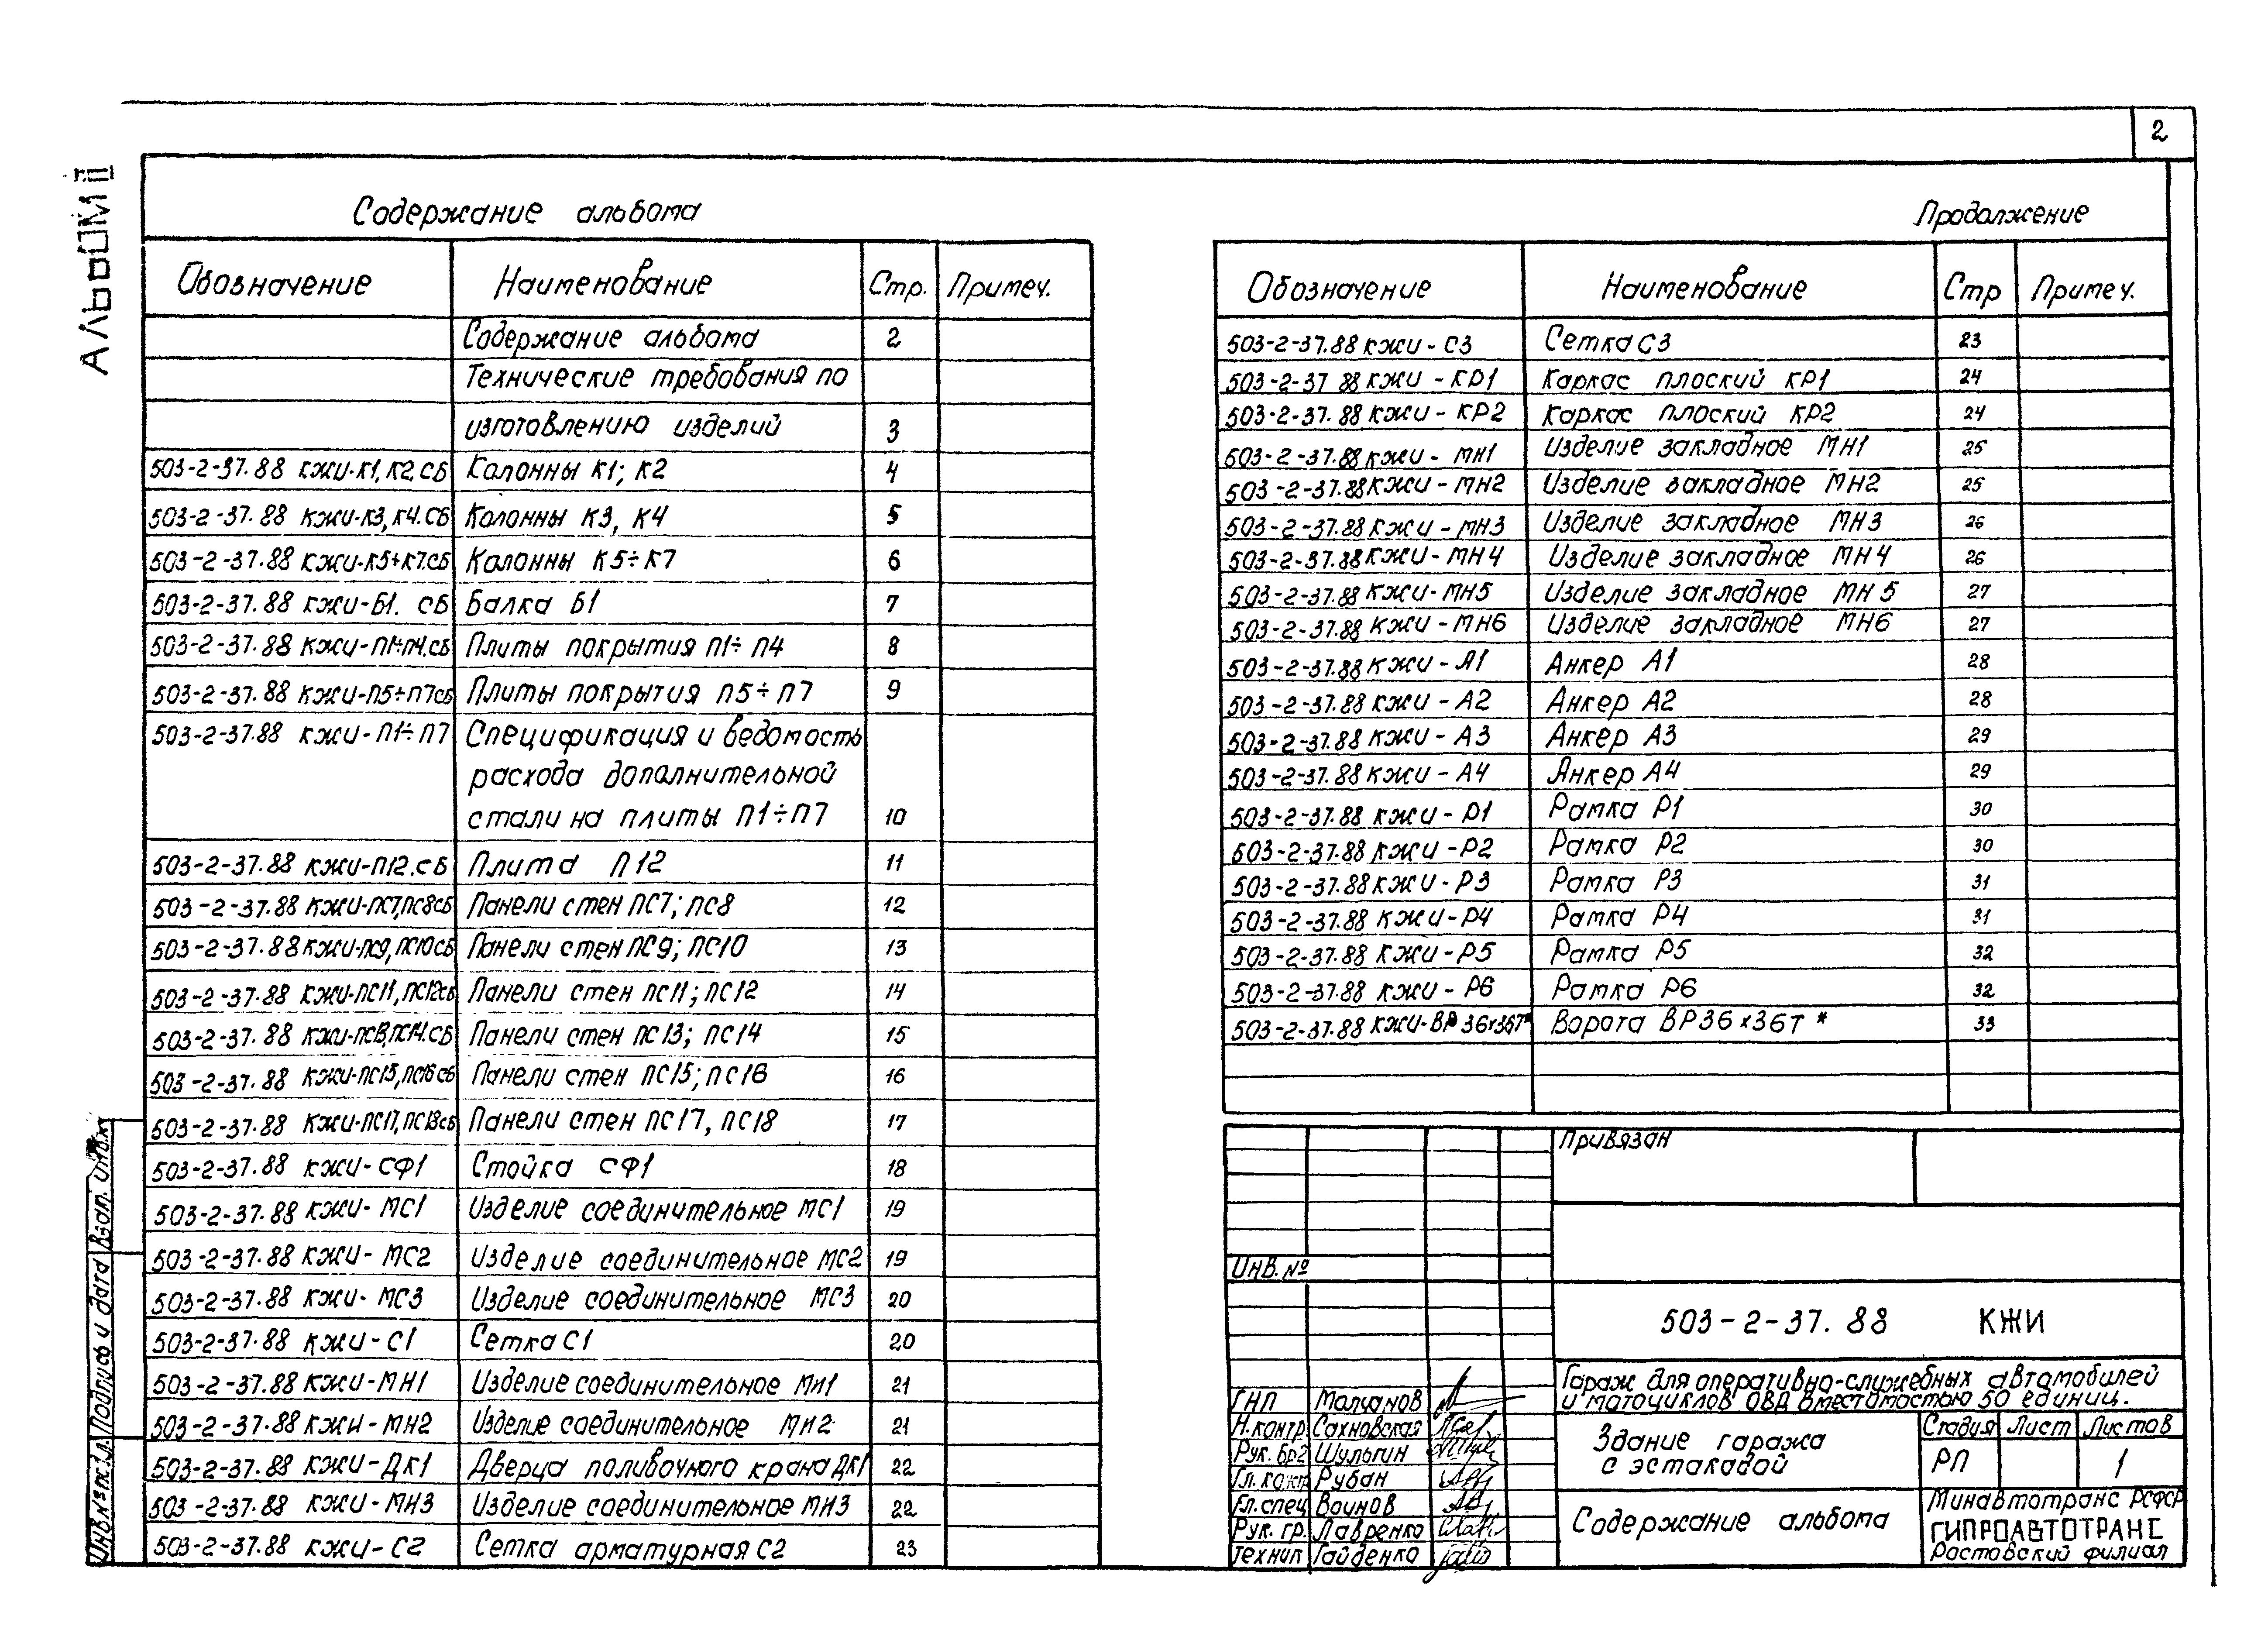 2
Альбом II
Содержание альбома
Обозначение Наименование Стр. Примеч.
Содержание альбома 2
Технические требования по
изготовлению изделий 3
503-2-37.88 КЖИ-К1, К2.СБ Колонны К1; К2 4
503-2-37.88 КЖИ-К3, К4.СБ Колонны К3, К4 5
503-2-37.88 КЖИ-К5÷К7.СБ Колонны К5÷К7 6
503-2-37.88 КЖИ-Б1. СБ Балка Б1 7
503-2-37.88 КЖИ-П1÷П4.СБ Плиты покрытия П1÷П4 8
503-2-37.88 КЖИ-П5÷П7СБ Плиты покрытия П5÷П7 9
503-2-37.88 КЖИ-П1÷П7 Спецификация и ведомость
расхода дополнительной
стали на плиты П1÷П7 10
503-2-37.88 КЖИ-П12.СБ Плита П12 11
503-2-37.88 КЖИ-ПС7,ПС8СБ Панели стен ПС7; ПС8 12
503-2-37.88 КЖИ-ПС9, ПС10СБ Панели стен ПС9; ПС10 13
503-2-37.88 КЖИ-ПС11, ПС12СБ Панели стен ПС11; ПС12 14
503-2-37.88 КЖИ-ПС13,ПС14.СБ Панели стен ПС13; ПС14 15
503-2-37.88 КЖИ-ПС15,ПС16СБ Панели стен ПС15; ПС16 16
503-2-37.88 КЖИ-ПС17,ПС18СБ Панели стен ПС17, ПС18 17
503-2-37.88 КЖИ-СФ1 Стойка СФ1 18
503-2-37.88 КЖИ-МС1 Изделие соединительное МС1 19
503-2-37.88 КЖИ-МС2 Изделие соединительное МС2 19
503-2-37.88 КЖИ-МС3 Изделие соединительное МС3 20
503-2-37.88 КЖИ-С1 Сетка С1 20
503-2-37.88 КЖИ-МН1 Изделие соединительное МИ1 21
503-2-37.88 КЖИ-МН2 Изделие соединительное МИ2 21
503-2-37.88 КЖИ-ДК1 Дверца поливочного крана ДК1 22
503-2-37.88 КЖИ-МН3 Изделие соединительное МИ3 22
503-2-37.88 КЖИ-С2 Сетка арматурная С2 23
Продолжение
Обозначение Наименование Стр Примеч.
503-2-37.88 КЖИ-С3 Сетка С3 23
503-2-37 88 КЖИ-КР1 Каркас плоский КР1 24
503-2-37.88 КЖИ-КР2 Каркас плоский КР2 24
503-2-37.88 КЖИ-МН1 Изделие закладное МН1 25
503-2-37.88 КЖИ-МН2 Изделие закладное МН2 25
503-2-37.88 КЖИ-МН3 Изделие закладное МН3 26
503-2-37.88 КЖИ-МН4 Изделие закладное МН4 26
503-2-37.88 КЖИ-МН5 Изделие закладное МН5 27
503-2-37.88 КЖИ-МН6 Изделие закладное МН6 27
503-2-37.88 КЖИ-А1 Анкер А1 28
503-2-37.88 КЖИ-А2 Анкер А2 28
503-2-37.88 КЖИ-А3 Анкер А3 29
503-2-37.88 КЖИ-А4 Анкер А4 29
503-2-37.88 КЖИ-Р1 Рамка Р1 30
503-2-37.88 КЖИ-Р2 Рамка Р2 30
503-2-37.88 КЖИ-Р3 Рамка Р3 31
503-2-37.88 КЖИ-Р4 Рамка Р4 31
503-2-37.88 КЖИ-Р5 Рамка Р5 32
503-2-37.88 КЖИ-Р6 Рамка Р6 32
503-2-37.88 КЖИ-ВР36х36Т* Ворота ВР36х36Т * 33
Привязан
Инв. №
503-2-37. 88 КЖИ
Гараж для оперативно-служебных автомобилей
и мотоциклов ОВД вместимостью 50 единиц.
ГИП Молчанов
Н.контр. Сахновская
Рук. бр2 Шульгин
Гл. констр Рубан
Гл.спец Воинов
Рук. гр. Лавренко
Техник Гайденко
Здание гаража
с эстакадой
Стадия Лист Листов
РП 1
Содержание альбома
Минавтотранс РСФСР
ГИПРОАВТОТРАНС
Ростовский филиал
Инв.№ подл. Подпись и дата Взам. инв.№